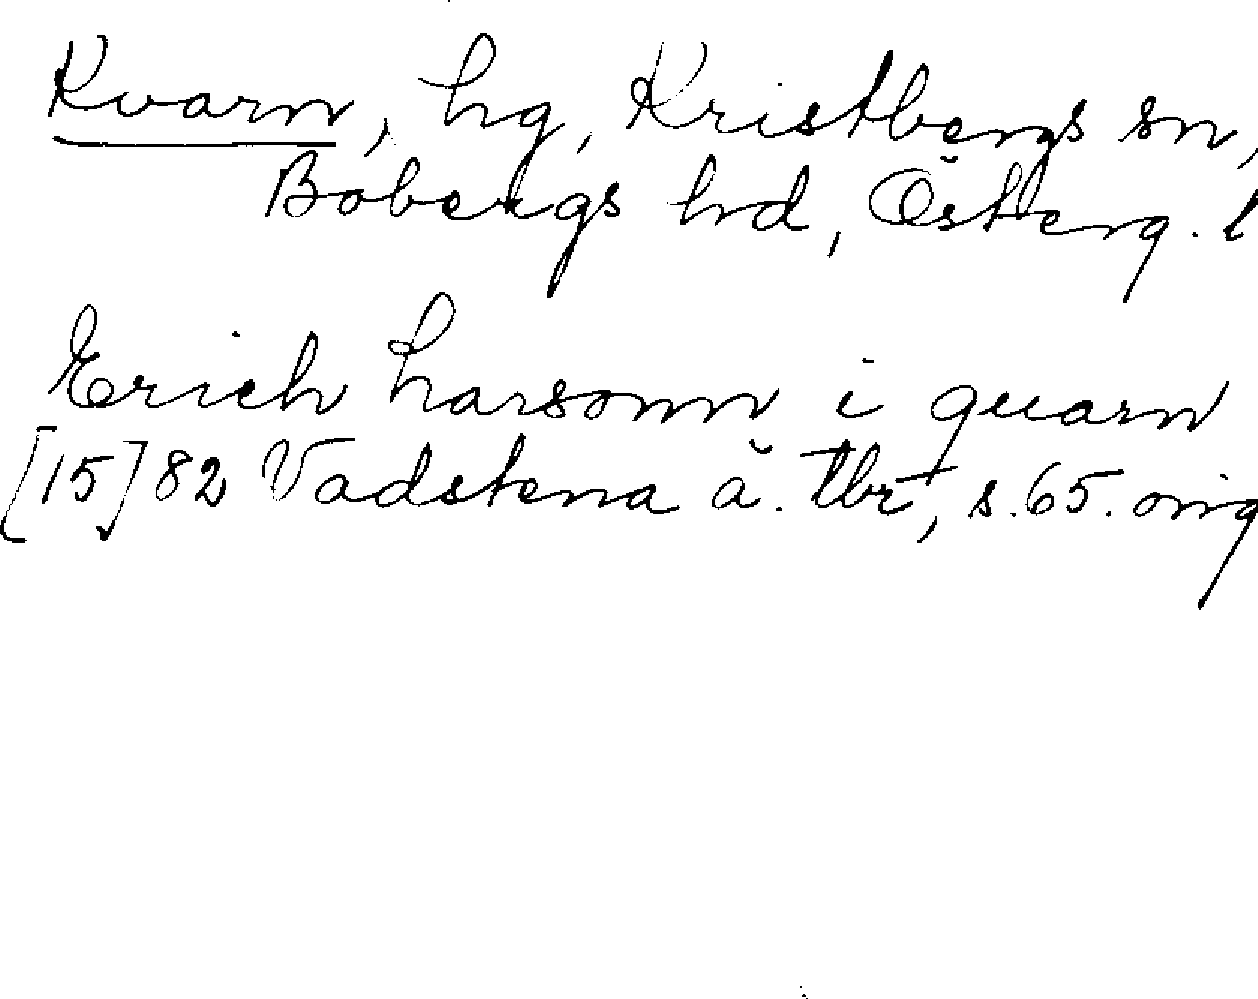 Kvarn, hg, Kristbergs sn,
Bobergs hd, Österg. l
Erich Larsonn i quarn
[15]82 Vadstena ä. tbr, s. 65. orig